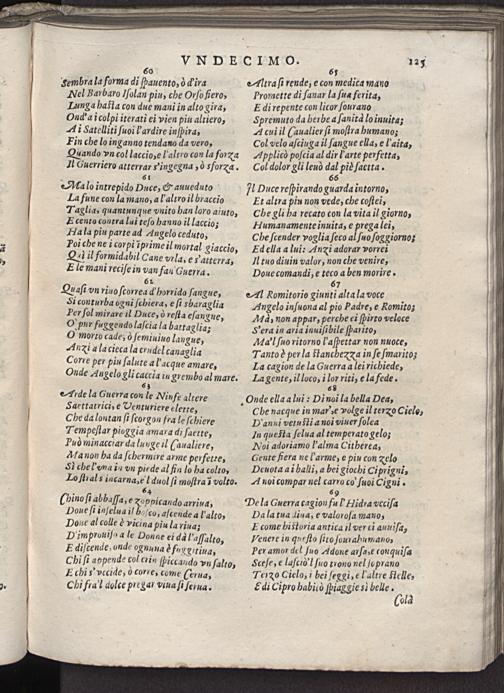 VNDECIMO.
125
60
Sembra la forma di spauento, ò d'ira
Nel Barbaro Isolan piu, che Orso fiero,
Lunga hasta con due mani in alto gira,
Ond'a i colpi iterati ei vien piu altiero,
A i Satelliti suoi l'ardire inspira,
Fin che lo inganno tendamo da vero,
Quando vn col laccio, e l'altro con la forza
Il Guerriero atterrar s'ingegna, ò sforza.
61
Ma lo intrepido Duce, & auueduto
La fune con la mano, a l'altro il braccio
Taglia, quantunque vnito han loro aiuto,
E cento contra lui teso hanno il laccio;
Ha la piu parte ad Angelo ceduto,
Poi che ne i corpi ĩprime il mortal giaccio,
Quì il formidabil Cane vrla, e s'atterra,
E le mani recise in van fan Guerra.
62
Quasi vn riuo scorrea d'horrido sangue,
Si conturba ogni schiera, e si sbaraglia
Per sol mirare il Duce, ò resta esangue,
O pur fuggendo lascia la battaglia;
O morto cade, ò semiuiuo langue,
Anzi a la cieca la crudel canaglia
Corre per piu salute a l'acque amare,
Onde Angelo gli caccia in grembo al mare.
63
Arde la Guerra con le Ninfe altere
Saettatrici, e Venturiere elette,
Che da lontan si scorgon fra le schiere
Tempestar pioggia amara di saette,
Può minacciar da lunge il Caualiere,
Ma non ha da schermire arme perfette,
Sì che l'vna in vn piede al fin lo ha colto,
Lo stral s'incarna, e'l duol si mostra ĩ volto.
64
Chino si abbassa, e zoppicando arriua,
Doue si inselua il bosco, ascende a l'alto,
Doue al colle è vicina piu la riua;
D'improuiso a le Donne ei dà l'assalto,
E discende, onde ognuna è fuggitiua,
Chi si appende col crin spiccando vn salto,
E chi s'vccide, ò corre, come Cerua,
Chi fra'l dolce pregar viua si serua.
65
Altra si rende, e con medica mano
Promette di sanar la sua ferita,
E di repente con licor sourano
Spremuto da herbe a sanità lo inuita;
A cui il Caualier si mostra humano;
Col velo asciuga il sangue ella, e l'aita,
Applicò poscia al dir l'arte perfetta,
Col dolor gli leuò dal piè saetta.
66
Il Duce respirando guarda intorno,
Et altra piu non vede, che costei,
Che gli ha recato con la vita il giorno,
Humanamente inuita, e prega lei,
Che scender voglia seco al suo soggiorno;
Ed ella a lui: Anzi adorar vorrei
Il tuo diuin valor, non che venire,
Doue comandi, e teco a ben morire.
67
Al Romitorio giunti alta la voce
Angelo insuona al pio Padre, e Romito;
Mà, non appar, perche ei spirto veloce
S'era in aria inuisibile sparito,
Ma'l suo ritorno l'aspettar non nuoce,
Tanto è per la stanchezza in se smarito;
La cagion de la Guerra a lei richiede,
La gente, il loco, i lor riti, e la fede.
68
Onde ella a lui: Di noi la bella Dea,
Che nacque in mar', e volge il terzo Cielo,
D'anni vetusti a noi viuer solea
In questa selua al temperato gelo;
Noi adoriamo l'alma Citherea,
Gente fiera ne l'arme, e piu con zelo
Deuota a i balli, a bei giochi Ciprigni,
A noi compar nel carro co' suoi Cigni.
69
De la Guerra cagion fu l'Hidra vccisa
Da la tua diua, e valorosa mano,
E come historia antica il ver ci auuisa,
Venere in questo sito sourahumano;
Per amor del suo Adone arsa, e conquisa
Scese, e lasciò'l suo trono nel soprano
Terzo Cielo, i bei seggi, e l'altre stelle,
E di Cipro habitò spiaggie sì belle.
Colà